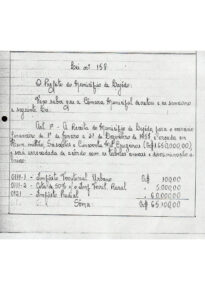 Lei nº 158
O Prefeito do Município de Lajedo.
Faço saber que a Câmara Municipal decretou e eu sanciono
a seguinte Lei:
Art. 1º - A Receita do Município de Lajedo, para o exercício
financeiro de 1º de Janeiro a 31 de Dezembro de 1959, é orçada em
e será arrecadada de acôrdo com as tabelas anexas e
0111-1 - Impôsto Territorial Urbano Cr$ 100,00
0111-2 - Cota de 50% s/ o Imp. Territ. Rural 5.000,00
0121 - Impôsto Predial 60.000,00
Soma Cr$ 65.100,00